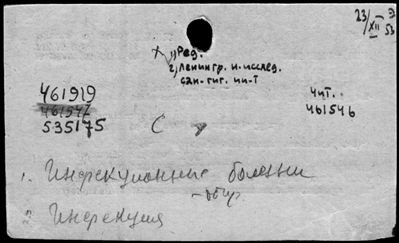 23/XII 53
X 1) Ред.
2) Ленингр. н.-исслед.
сан-гиг. ин-т
461919
461542
535175
Чит.
461546
С
1. Инфекционные болезни
- общ.
2. Инфекция